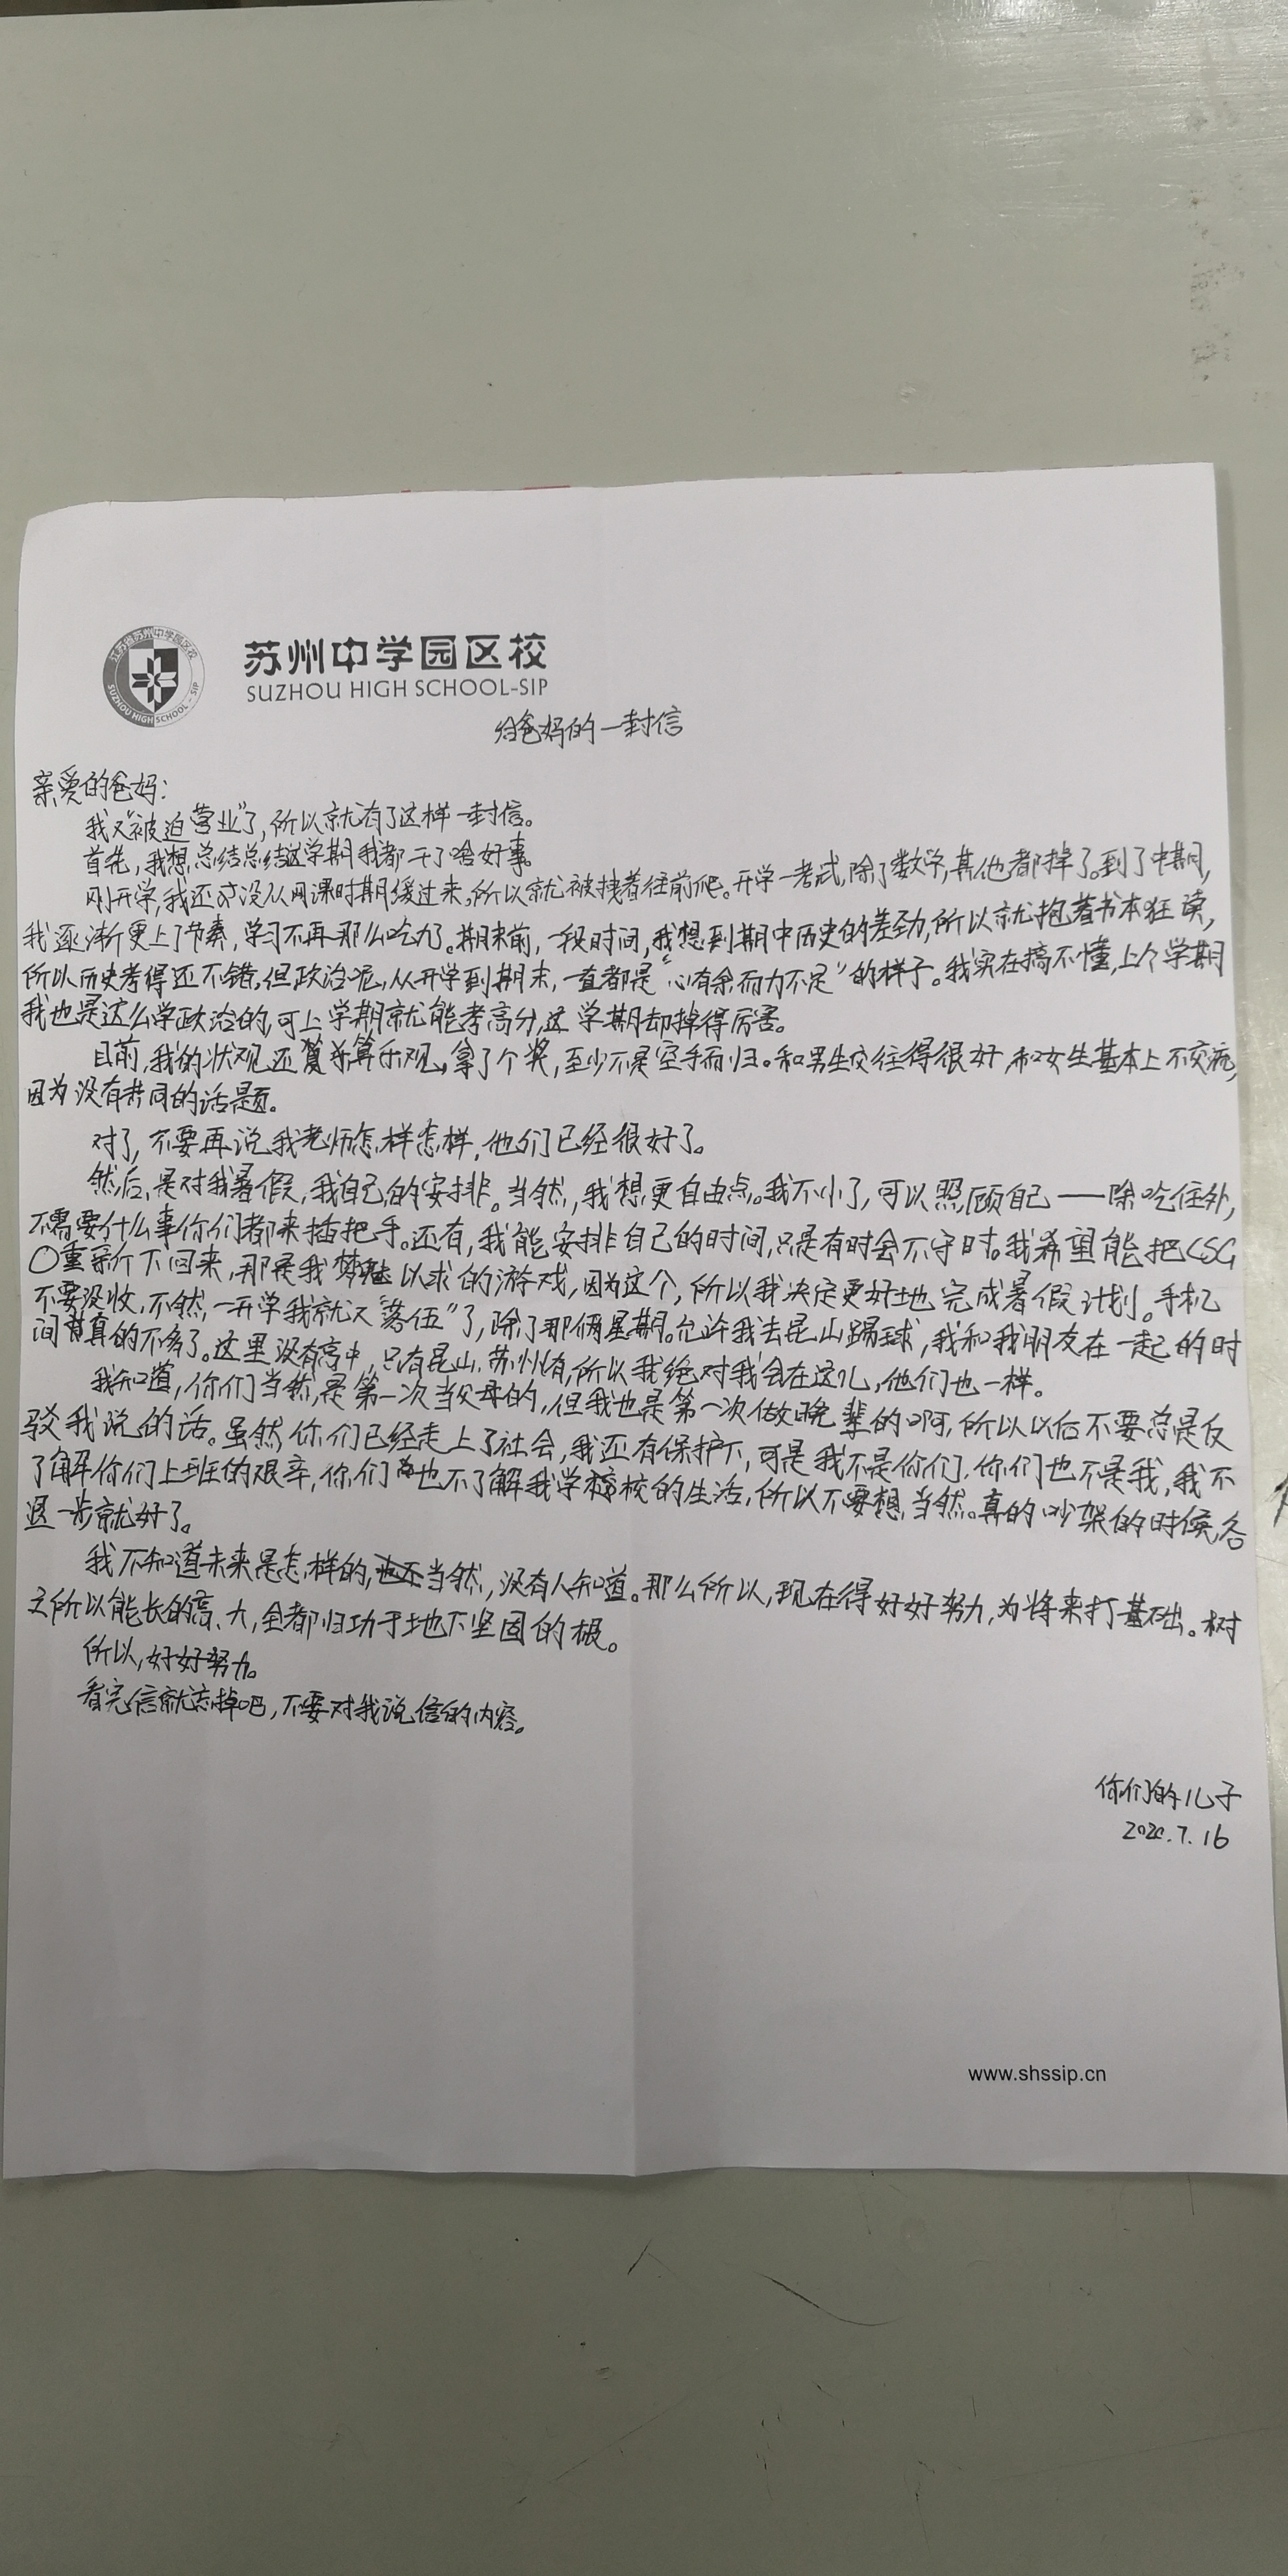 江苏省苏州中学园区校
SUZHOU HIGH SCHOOL-SIP
苏州中学园区校
SUZHOU HIGH SCHOOL-SIP
给爸妈的一封信
亲爱的爸妈:
我又"被迫营业"了,所以就有了这样一封信。
首先,我想总结总结这学期我都干了啥好事。
刚开学,我还没从网课时期缓过来,所以就被拽着往前爬。开学一考试,除了数学,其他都掉了。到了中期,
我逐渐更上了节奏,学习不再那么吃力。期末前,一段时间,我想到期中历史的差劲,所以就抱着书本狂读,
所以历史考得还不错,但政治呢,从开学到期末,一直都是"心有余而力不足"的样子。我实在搞不懂,上个学期
我也是这么学政治的,可上学期就能考高分,这学期却掉得厉害。
目前,我的状观还算乐观,拿了个奖,至少不是空手而归。和男生交往得很好,和女生基本上不交流,
因为没有共同的话题。
对了,不要再说我老师怎样怎样,他们已经很好了。
然后,是对我暑假,我自己的安排。当然,我想更自由点。我不小了,可以照顾自己——除吃住外,
不需要什么事你们都来插把手。还有,我能安排自己的时间,只是有时会不守时。我希望能把CSG
O重新下回来,那是我梦魅以求的游戏,因为这个,所以我决定更好地完成暑假计划。手机
不要没收,不然,一开学我就又"落伍"了,除了那俩星期。允许我去昆山踢球,我和我朋友在一起的时
间真的不多了。这里没有高中,只有昆山、苏州有,所以我绝对我会在这儿,他们也一样。
我知道,你们当然,是第一次当父母的,但我也是第一次做晚辈的啊,所以以后不要总是反
驳我说的话。虽然你们已经走上了社会,我还有保护下,可是我不是你们,你们也不是我,我不
了解你们上班的艰辛,你们也不了解我学校的生活,所以不要想当然。真的吵架的时候,各
退一步就好了。
我不知道未来是怎样的,当然,没有人知道。那么所以,现在得好好努力,为将来打基础。树
之所以能长的高、大,全都归功于地下坚固的根。
所以,好好努力。
看完信就忘掉吧,不要对我说信的内容。
你们的儿子
2020.7.16
www.shssip.cn